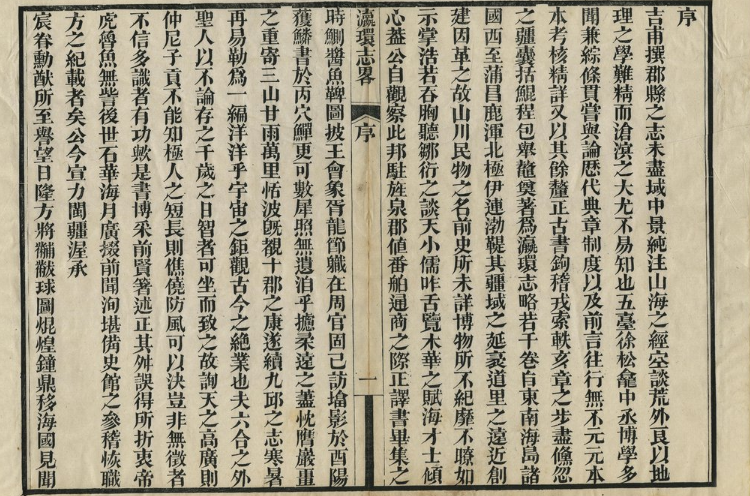 序
吉甫撰郡縣之志未盡域中景純注山海之經宏談荒外良以地
理之學難精而滄溟之大尤不易知也五臺徐松龕中丞博學多
聞兼綜條貫嘗與論歷代典章制度以及前言往行無不元元本
本考核精詳又以其餘釐正古書鉤稽戎索軼亥章之步盡儵忽
之疆囊括鯤程包舉鼇奠著爲瀛環志略若干卷自東南海島諸
國西至蒲昌鹿渾北極伊連渤鞮其疆域之延袤道里之遠近創
建因革之故山川民物之名前史所未詳博物所不紀靡不瞭如
示掌浩若吞胸聽鄒衍之談天小儒咋舌覽木華之賦海才士傾
心蓋公自觀察此邦駐旌泉郡値番舶通商之際正譯書畢集之
瀛環志畧 序 一
時鰂醬魚鞞圖披王會象胥龍節職在周官固已訪墖影於酉陽
獲鱗書於丙穴鱓更可數犀照無遺洎乎擔柔遠之藎忱膺嚴重
之重寄三山甘雨萬里恬波旣覩十郡之康遂續九邱之志寒暑
再易勒爲一編洋洋乎宇宙之鉅觀古今之絶業也夫六合之外
聖人以不論存之千歲之日智者可坐而致之故詢天之高廣則
仲尼子貢不能知極人之短長則僬僥防風可以決豈非無徵者
不信多識者有功歟是書博釆前賢箸述正其舛誤得所折衷帝
虎魯魚無訾後世石華海月廣掇前聞洵堪備史館之參稽恢職
方之紀載者矣公今宣力閩疆渥承
宸眷勳猷所至譽望日隆方將黼黻球圖焜煌鐘鼎移海國見聞